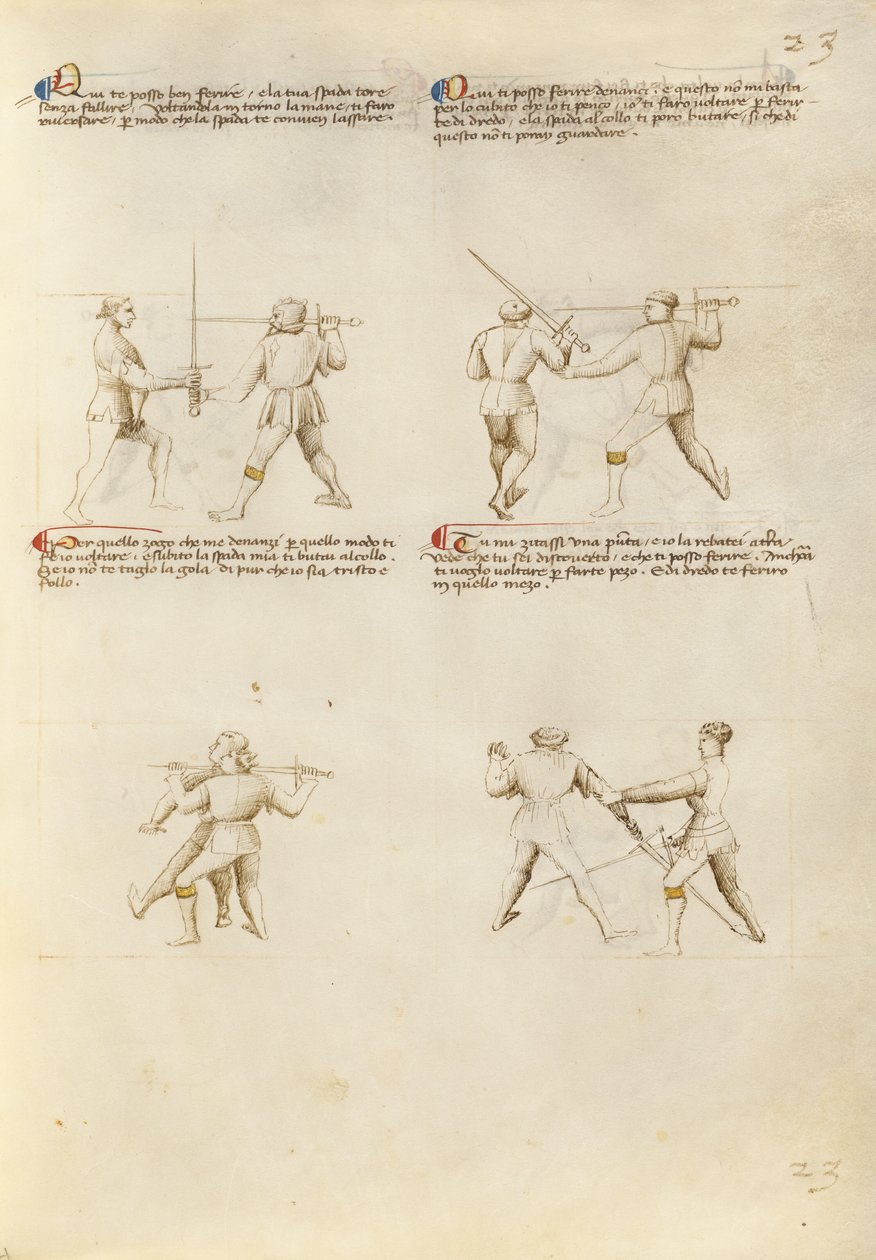 23
Qui te posso ben ferire / e la tua spada tore
senza fallire / Voltandola in torno la mane / ti faro
riversare / p modo che la spada te convien lassare .
Qui ti posso ferire denanci . e questo nō mi basta
per lo cubito che io ti penço / io ti faro voltare p ferir-
te di dredo / e la spada al collo ti poro butare / si che di
questo nō ti poray guardare .
Per quello zogo che me denanzi p quello modo ti
fe io voltare / e subito la spada mia ti butai al collo .
Se io nō te taglo la gola di pur che io sia tristo e
follo .
Tu mi zitassi una pūta / e io la rebatei a tīra
vede che tu sei discoverto / e che ti posso ferire . Anchora
ti voglo voltare p farte pezo . E di dredo te feriro
in quello mezo .
23